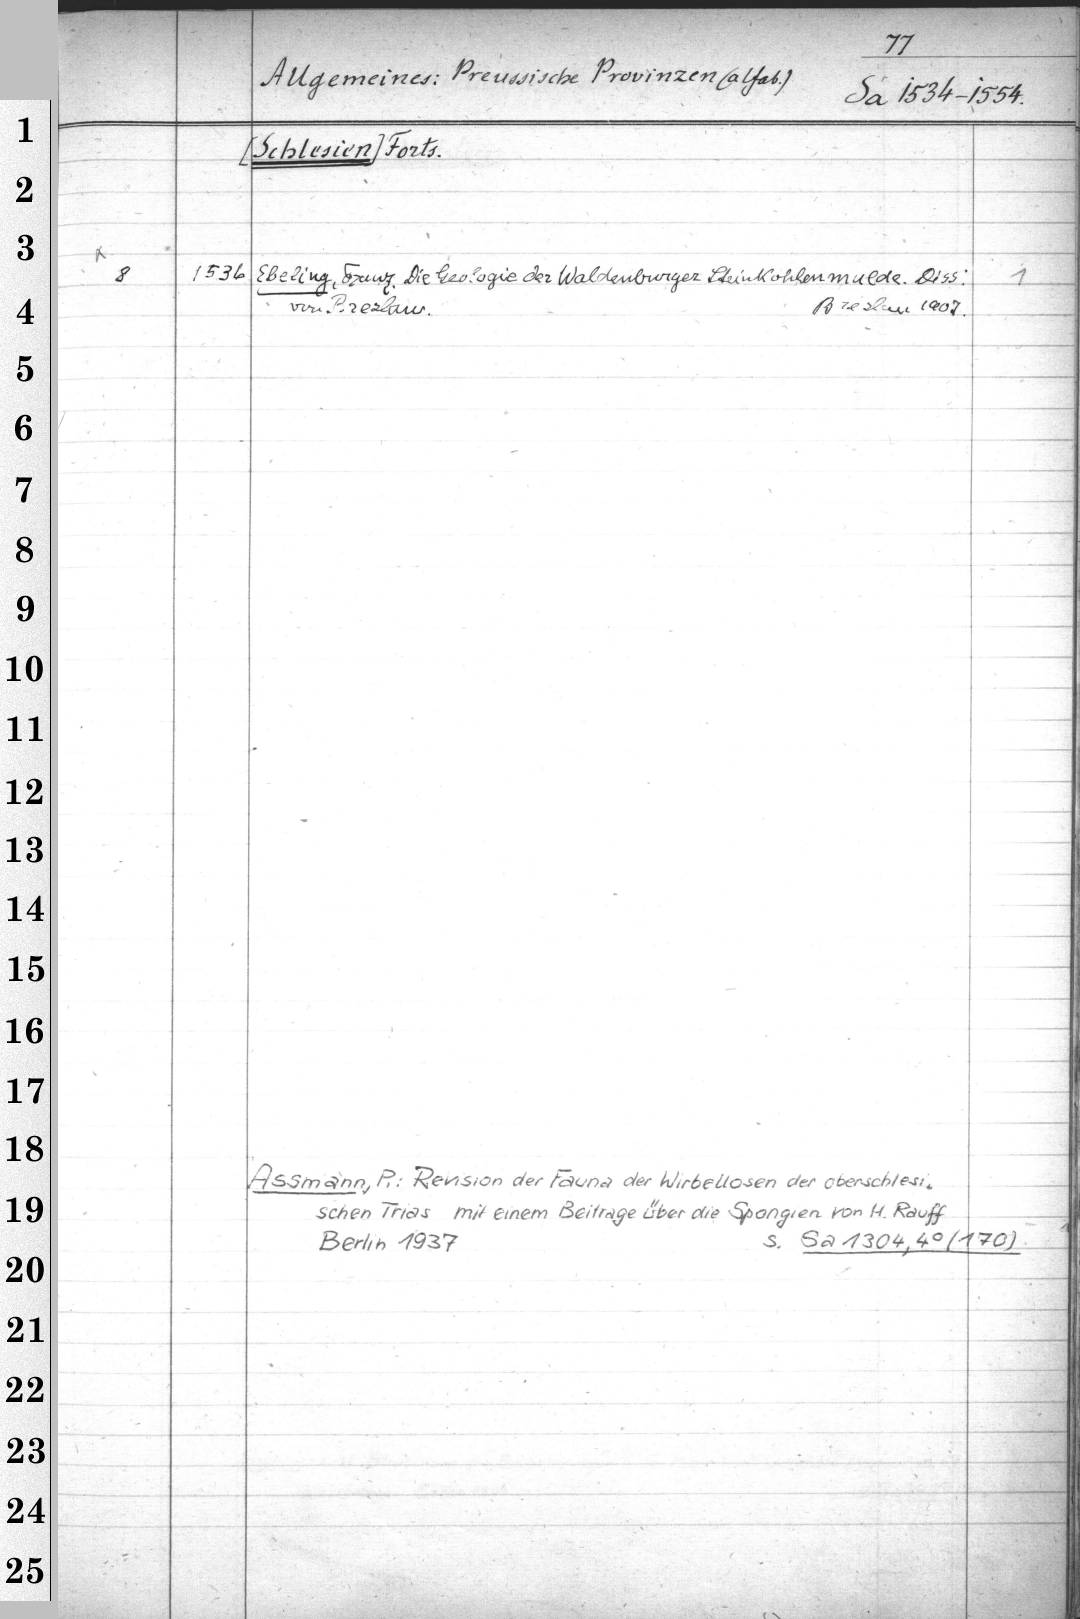 77
Allgemeines: Preussische Provinzen (alfab.)
Sa 1534-1554.
1
[Schlesien] Forts.
2
3
8 1536 Ebeling, Franz. Die Geologie der Waldenburger Steinkohlenmulde. Diss: 1
von Breslau. Breslau 1907.
4
5
6
7
8
9
10
11
12
13
14
15
16
17
18
Assmann, P.: Revision der Fauna der Wirbellosen der oberschlesi-
19
schen Trias mit einem Beitrage über die Spongien von H. Rauff
Berlin 1937 s. Sa 1304, 4° (170)
20
21
22
23
24
25